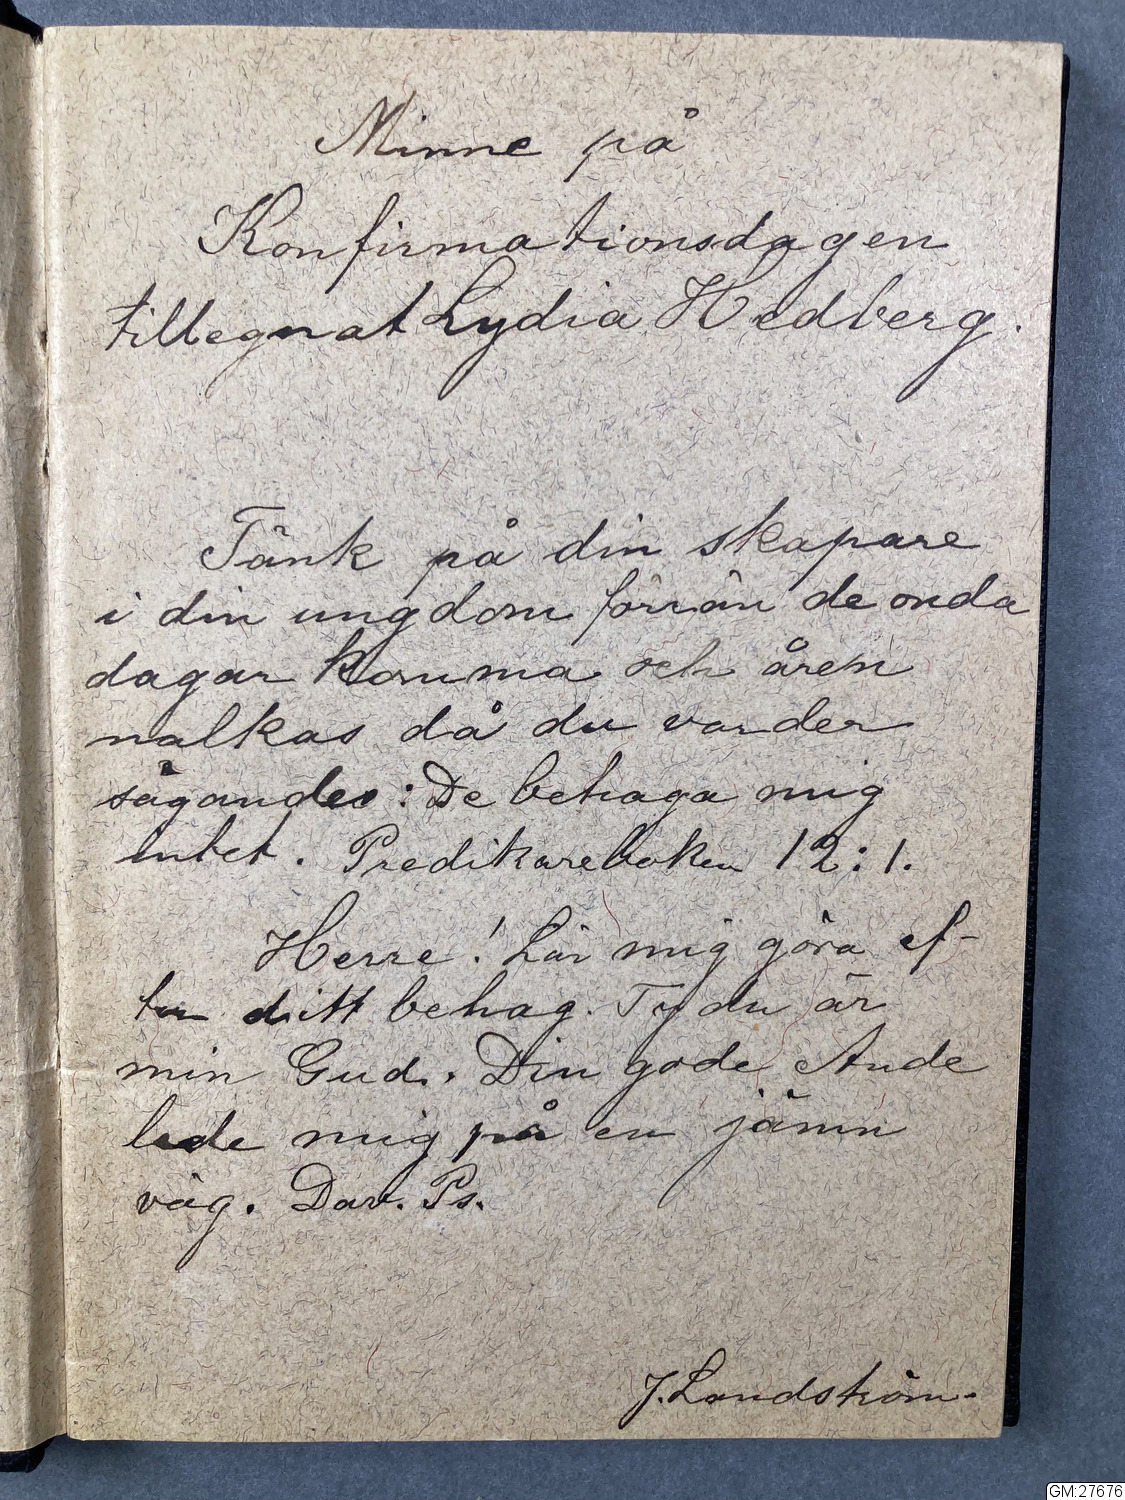 Minne på
Konfirmationsdagen
tillegnat Lydia Hedberg.
Tänk på din skapare
i din ungdom förrän de onda
dagar komma och åren
nalkas då du varder
sägandes: De behaga mig
intet. Predikareboken 12:1.
Herre! Lär mig göra ef-
ter ditt behag. Ty du är
min Gud. Din gode Ande
lede mig på en jämn
väg. Dav. Ps.
J. Landström.
GM:27676